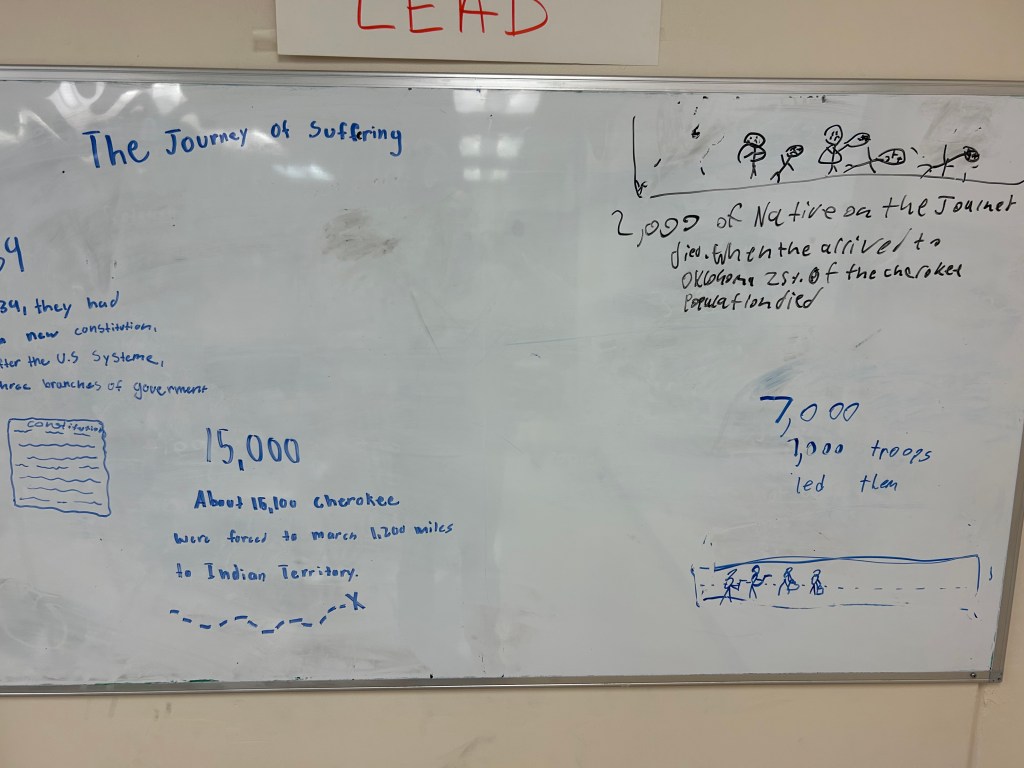 LEAD
The Journey of Suffering
39, they had
new constitution,
the U.S Systeme,
branches of government
constitution
15,000
About 15,100 cherokee
were forced to march 1,200 miles
to Indian Territory.
X
2,000 of Native on the Journet
died. When the arrived to
Oklohoma 25% Of the cherokee
Population died
7,000
7,000 troops
led them